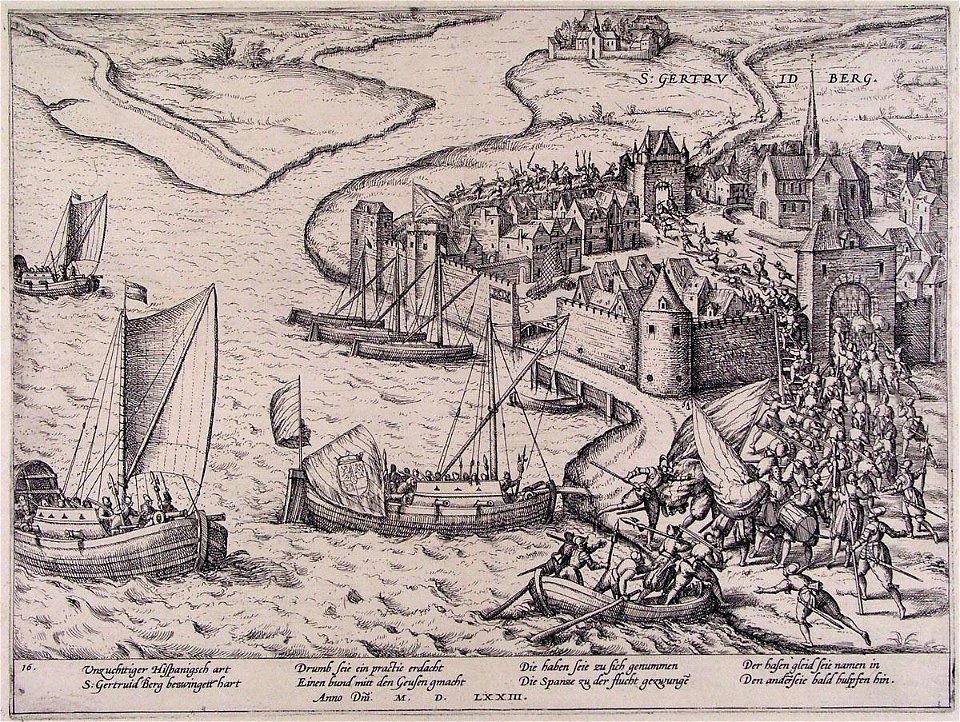 S: GERTRV ID BERG.
16.
Unzuchtiger Hispanigsch art
S: Gertruid Berg bezwingett hart
Drumb seie ein practic erdacht
Einen bund mitt den Geusen gmacht
Die haben seie zu sich genummen
Die Spanse zu der flucht gezwungē
Der hasen gleid seie namen in
Den anderseie bald hulpfen hin.
Anno Dnī. M. D. LXXIII.